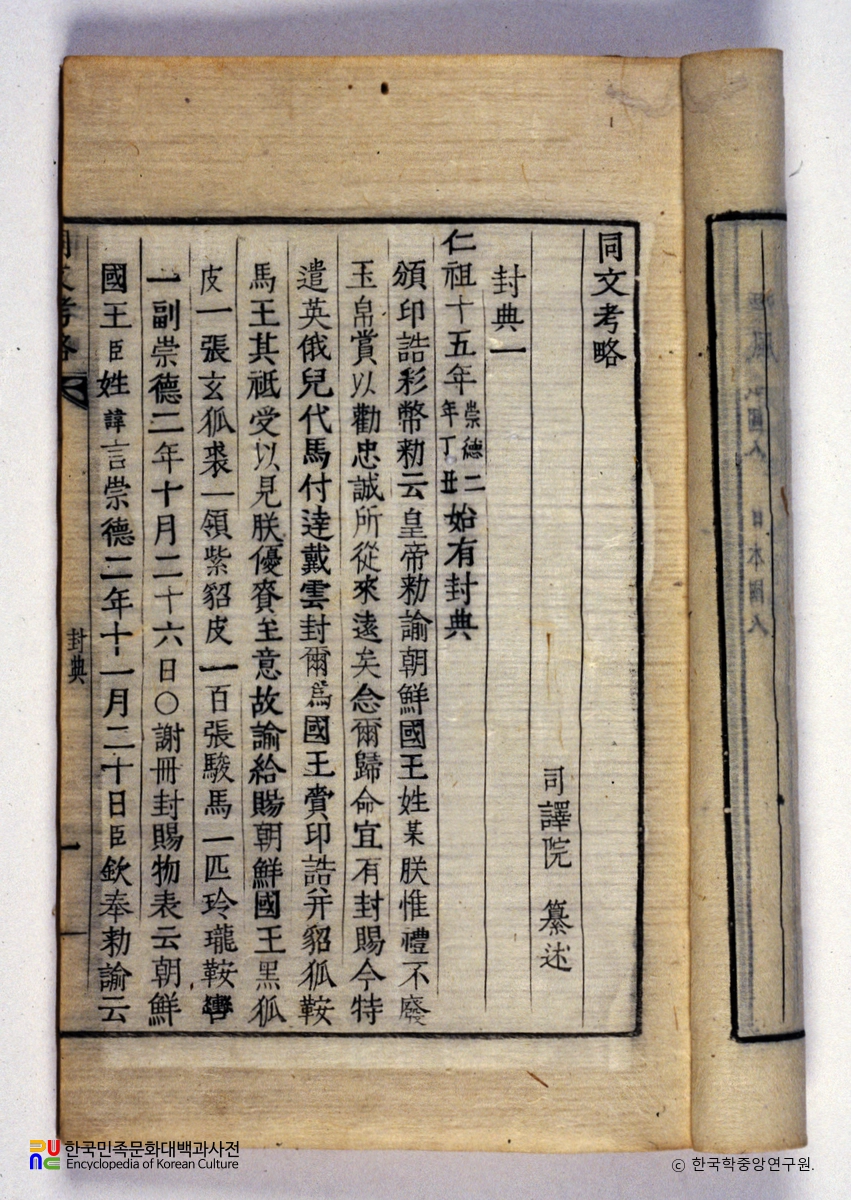 同文考略
司譯院 纂述
封典一
仁祖十五年崇德二年丁丑始有封典
頒印誥彩幣勅云皇帝勅諭朝鮮國王姓某朕惟禮不廢
玉帛賞以勸忠誠所從來遠矣念爾歸命宜有封賜今特
遣英俄兒代馬付達戴雲封爾爲國王賞印誥并貂狐鞍
馬王其祗受以見朕優賚至意故諭給賜朝鮮國王黑狐
皮一張玄狐裘一領紫貂皮一百張駿馬一匹玲瓏鞍轡
一副崇德二年十月二十六日〇謝冊封賜物表云朝鮮
國王臣姓諱言崇德二年十一月二十日臣欽奉勅諭云
同文考略
封典
一
日本國人
한국민족문화대백과사전
Encyclopedia of Korean Culture
ⓒ 한국학중앙연구원.